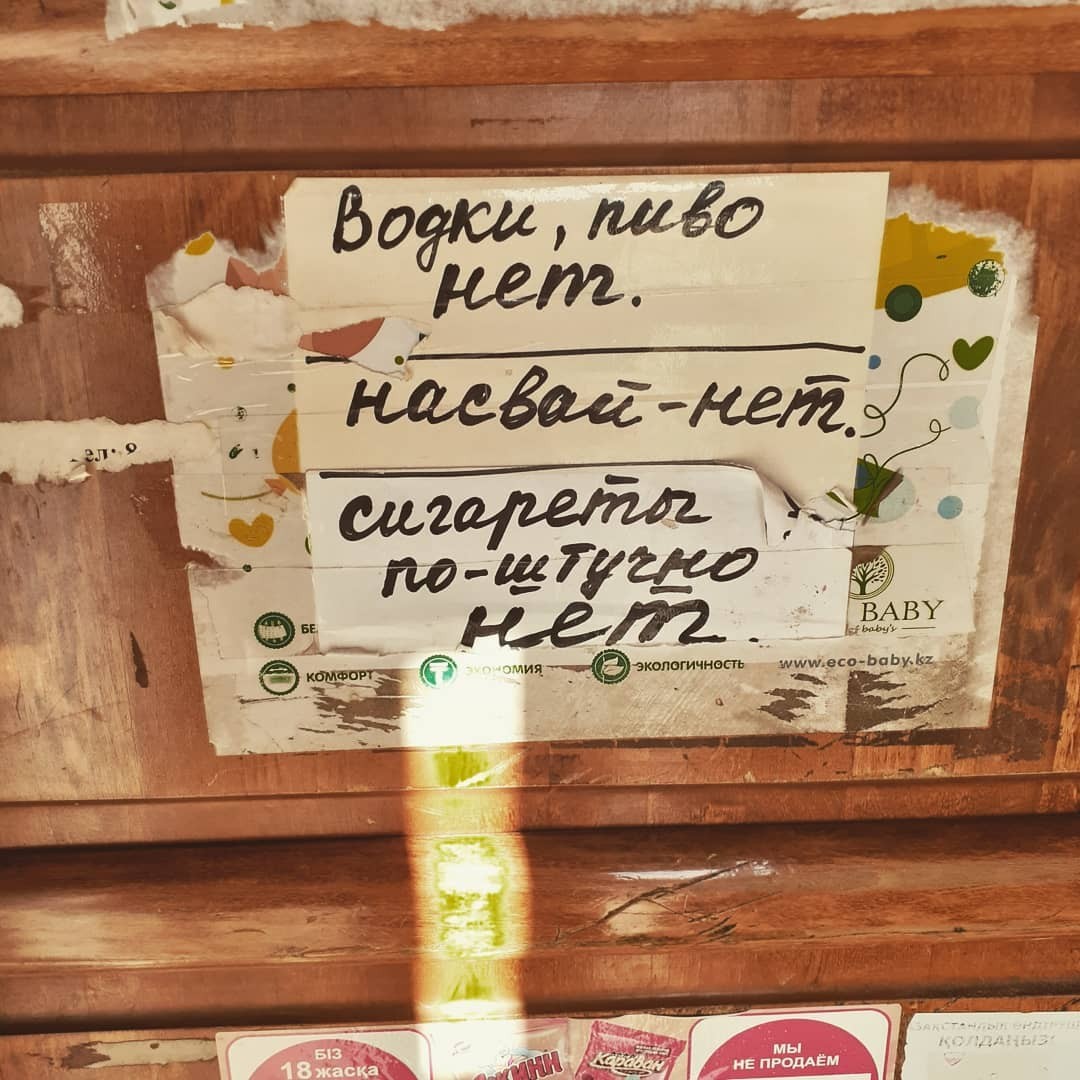 Водки, пиво
нет.
насвай-нет.
сигареты
по-штучно
нет.
BABY
of baby's
КОМФОРТ
ЭКОНОМИЯ
ЭКОЛОГИЧНОСТЬ
www.eco-baby.kz
БІЗ
18 жасқа
Караван
МЫ
НЕ ПРОДАЁМ
ҚОЛДАҢЫЗ!